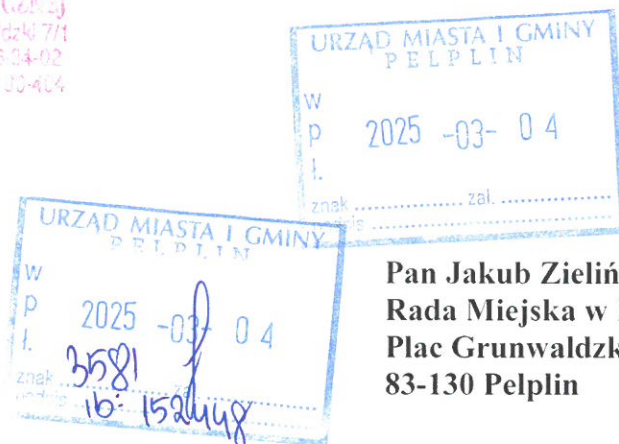 URZĄD MIASTA I GMINY
PELPLIN
W
p 2025 -03- 04
ł.
znak .................. zał. ..................
URZĄD MIASTA I GMINY
PELPLIN
W
p 2025 -03- 04
ł.
3581
znak
ib: 152448
Pan Jakub Zieliń
Rada Miejska w
Plac Grunwaldzk
83-130 Pelplin